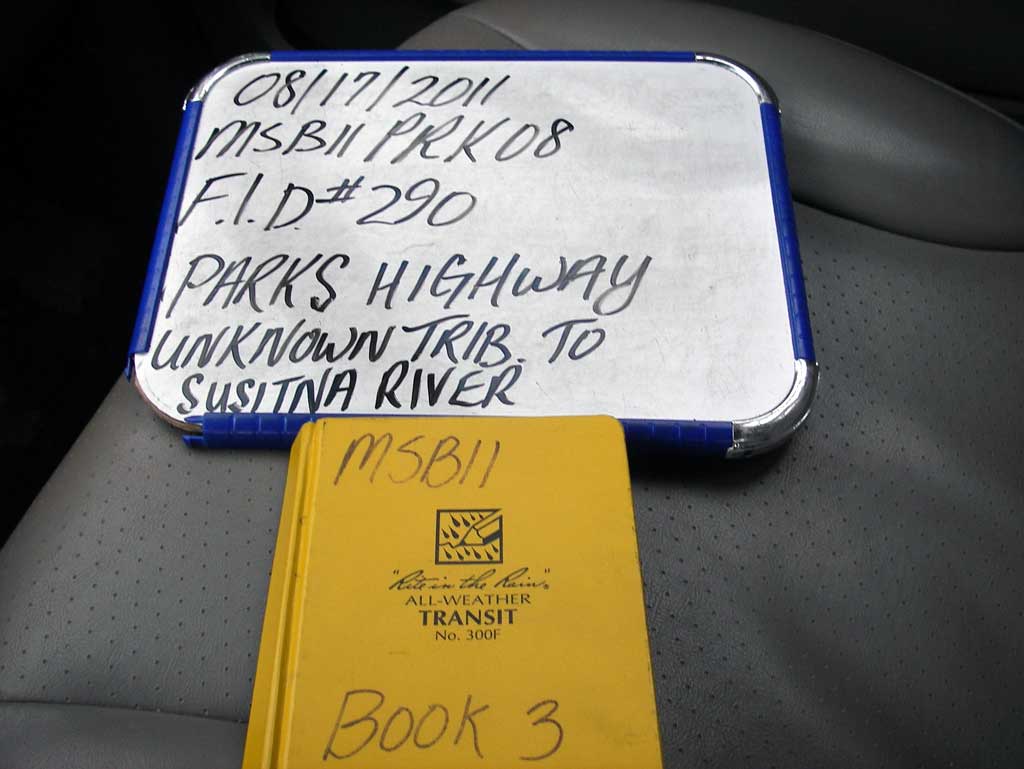 08/17/2011
MSB11 PRK08
F.I.D.#290
PARKS HIGHWAY
UNKNOWN TRIB. TO
SUSITNA RIVER
MSB11
"Rite in the Rain"®
ALL-WEATHER
TRANSIT
No. 300F
BOOK 3